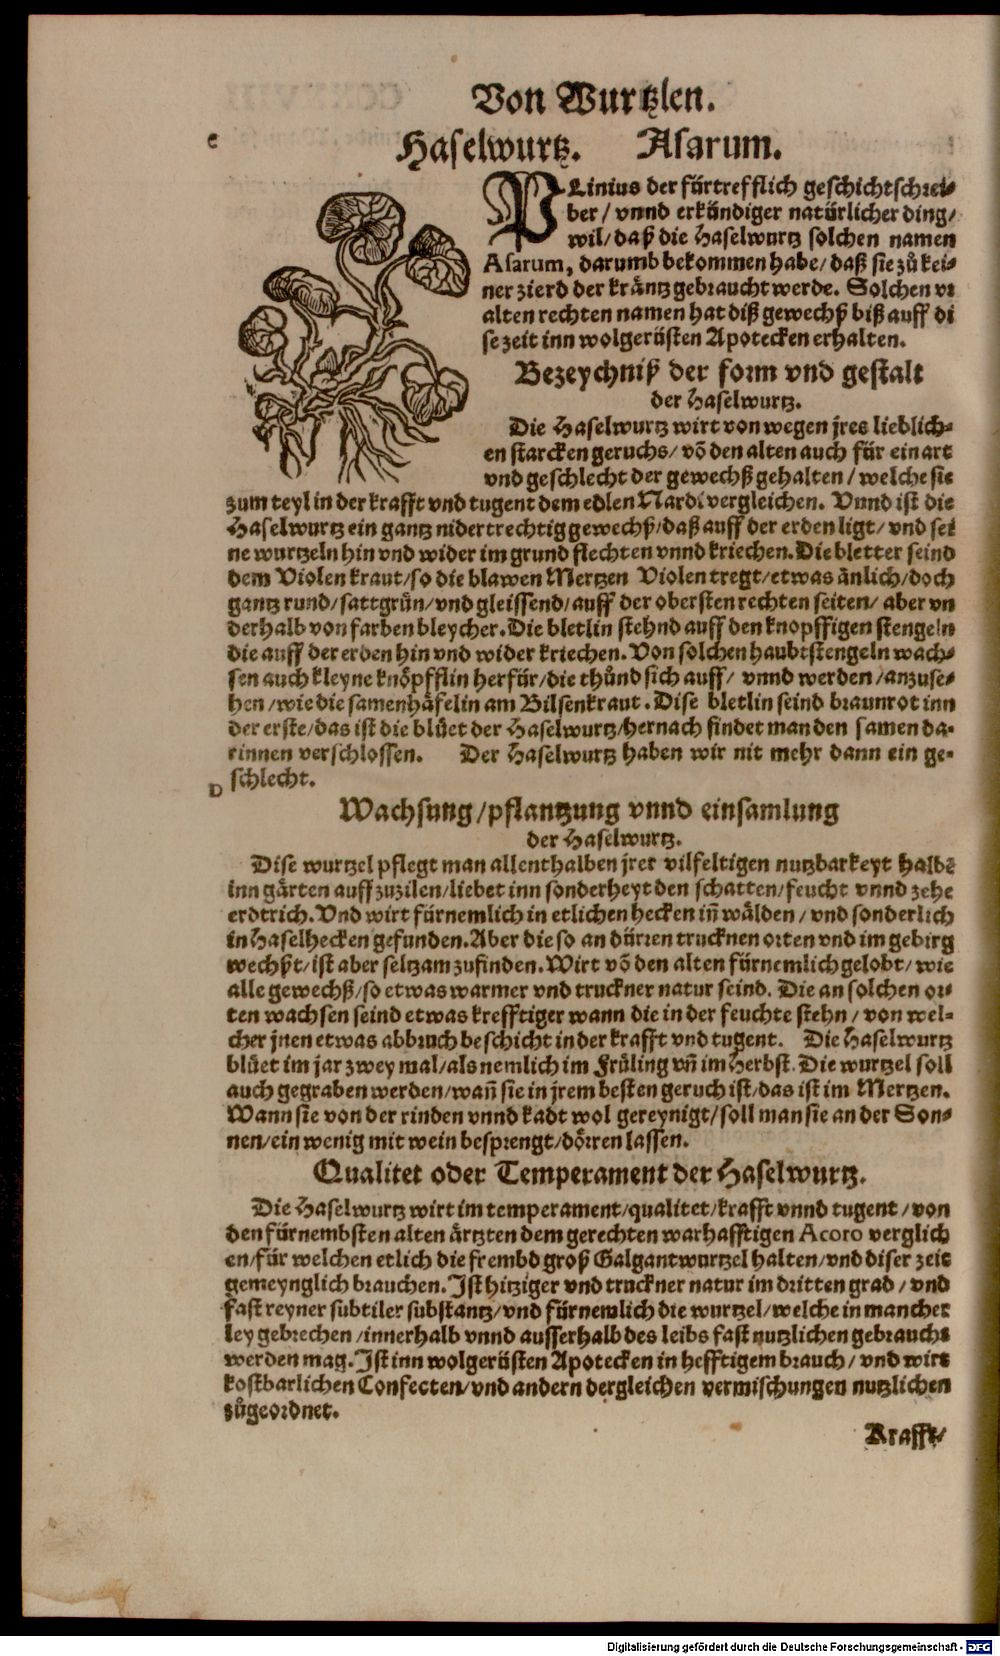 Von Wurtzlen.
c
Haselwurtz. Asarum.
PLinius der fürtrefflich geschichtschrei-
ber / vnnd erkündiger natürlicher ding/
wil/ daß die Haselwurtz solchen namen
Asarum, darumb bekommen habe/ daß sie zů kei-
ner zierd der kräntz gebraucht werde. Solchen vr
alten rechten namen hat diß gewechß biß auff di
se zeit inn wolgerüsten Apotecken erhalten.
Bezeychniß der form vnd gestalt
der Haselwurtz.
Die Haselwurtz wirt von wegen jres lieblich-
en starcken geruchs/ võ den alten auch für ein art
vnd geschlecht der gewechß gehalten / welche sie
zum teyl in der krafft vnd tugent dem edlen Nardi vergleichen. Vnnd ist die
Haselwurtz ein gantz nidertrechtig gewechß/ daß auff der erden ligt/ vnd sei
ne wurtzeln hin vnd wider im grund flechten vnnd kriechen. Die bletter seind
dem Violen kraut/ so die blawen Mertzen Violen tregt/ etwas änlich/ doch
gantz rund/ sattgrün/ vnd gleissend/ auff der obersten rechten seiten/ aber vn
derhalb von farben bleycher. Die bletlin stehnd auff den knopffigen stengeln
die auff der erden hin vnd wider kriechen. Von solchen haubtstengeln wach-
sen auch kleyne knöpfflin herfür/ die thůnd sich auff/ vnnd werden/ anzuse-
hen / wie die samenhäfelin am Bilsenkraut. Dise bletlin seind braunrot inn
der erste/ das ist die blüet der Haselwurtz/ hernach findet man den samen da-
rinnen verschlossen. Der Haselwurtz haben wir nit mehr dann ein ge-
schlecht.
D
Wachsung / pflantzung vnnd einsamlung
der Haselwurtz.
Dise wurtzel pflegt man allenthalben jrer vilfeltigen nutzbarkeyt halbẽ
inn gärten auff zuzilen/ liebet inn sonderheyt den schatten/ feucht vnnd zehe
erdtrich. Vnd wirt fürnemlich in etlichen hecken iñ wälden / vnd sonderlich
in Haselhecken gefunden. Aber die so an dürren trucknen orten vnd im gebirg
wechßt/ ist aber seltzam zufinden. Wirt võ den alten fürnemlich gelobt/ wie
alle gewechß/ so etwas warmer vnd truckner natur seind. Die an solchen or-
ten wachsen seind etwas krefftiger wann die in der feuchte stehn / von wel-
cher jnen etwas abbruch beschicht in der krafft vnd tugent. Die Haselwurtz
blüet im jar zwey mal/ als nemlich im Früling vñ im Herbst. Die wurtzel soll
auch gegraben werden/ wañ sie in jrem besten geruch ist/ das ist im Mertzen.
Wann sie von der rinden vnnd kadt wol gereynigt/ soll man sie an der Son-
nen/ ein wenig mit wein besprengt/ dörren lassen.
Qualitet oder Temperament der Haselwurtz.
Die Haselwurtz wirt im temperament/ qualitet/ krafft vnnd tugent / von
den fürnembsten alten ärtzten dem gerechten warhafftigen Acoro verglich
en/ für welchen etlich die frembd groß Galgantwurtzel halten/ vnd diser zeit
gemeynglich brauchen. Ist hitziger vnd truckner natur im dritten grad / vnd
fast reyner subtiler substantz/ vnd fürnemlich die wurtzel/ welche in mancher
ley gebrechen / innerhalb vnnd ausserhalb des leibs fast nutzlichen gebraucht
werden mag. Ist inn wolgerüsten Apotecken in hefftigem brauch / vnd wirt
kostbarlichen Confecten/ vnd andern dergleichen vermischungen nutzlichen
zůgeordnet.
Krafft/
Digitalisierung gefördert durch die Deutsche Forschungsgemeinschaft - DFG